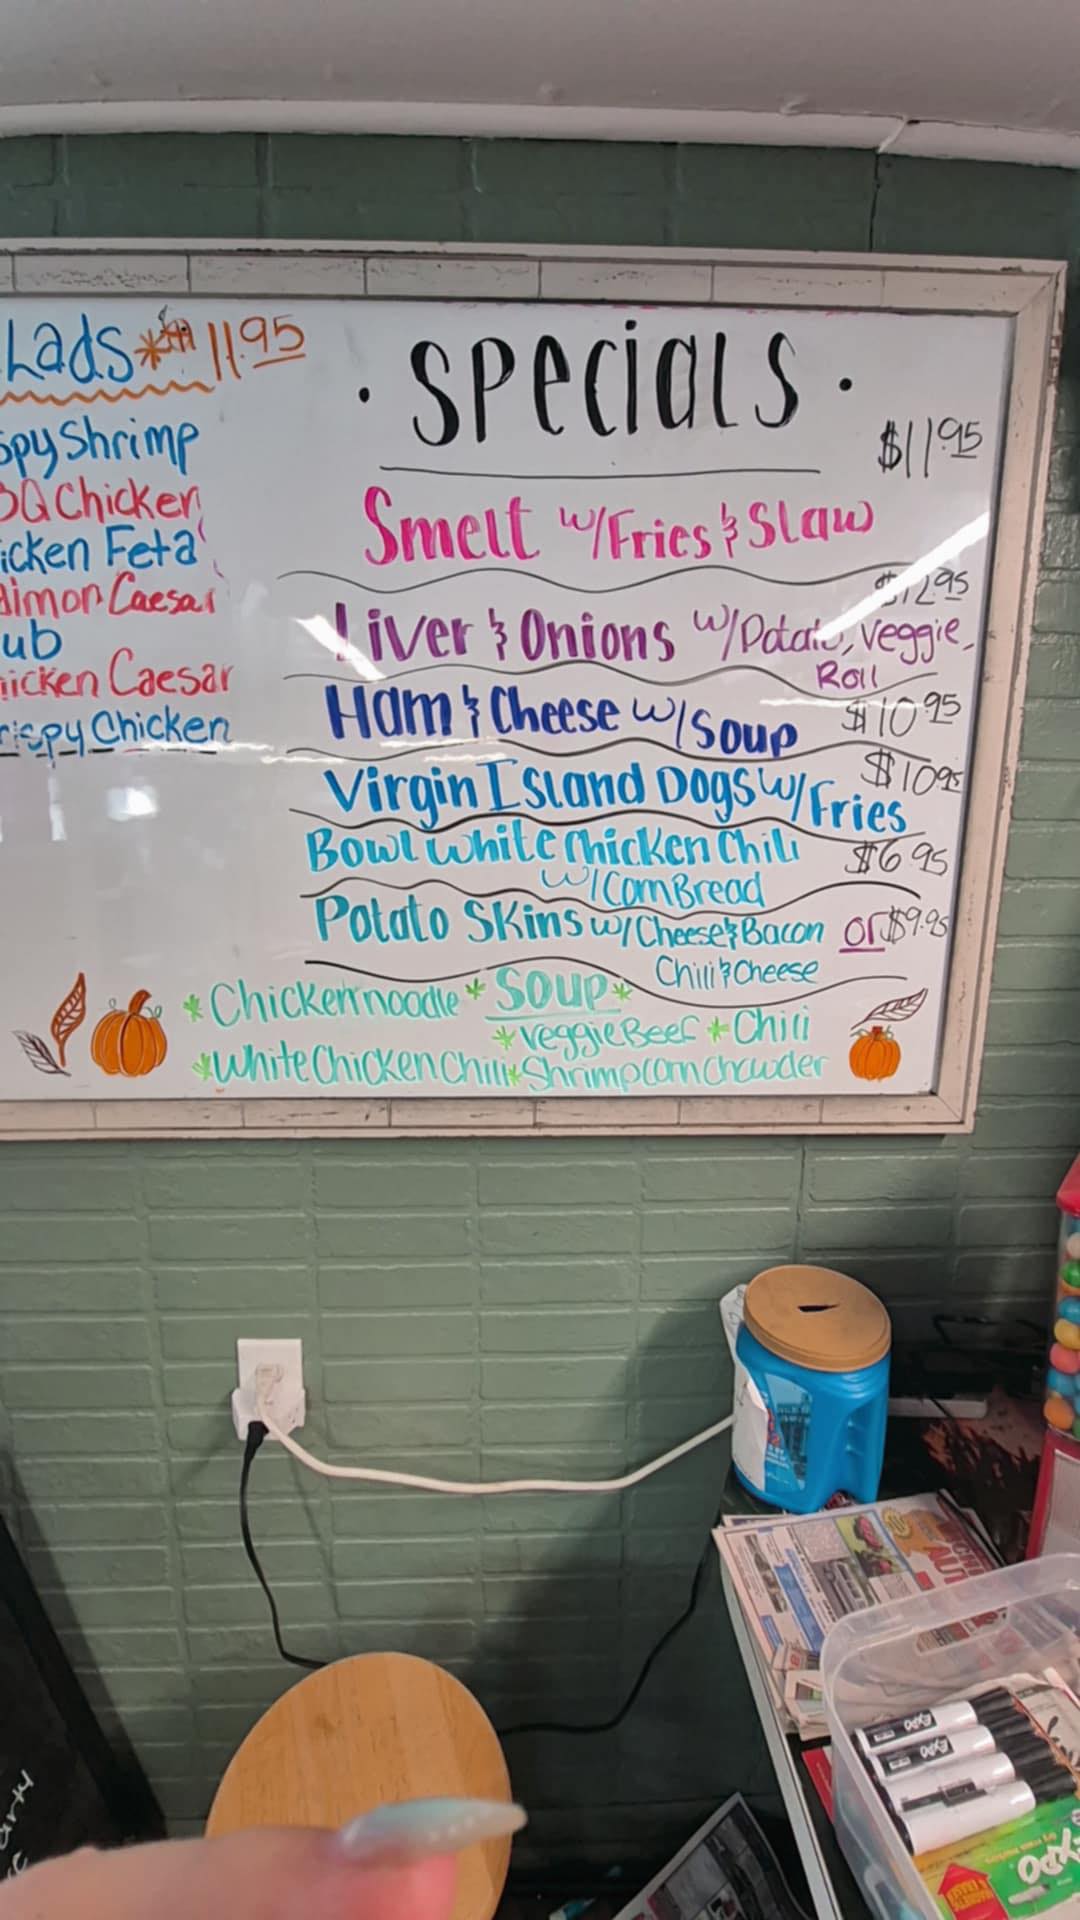 Lads $11.95
spy Shrimp
BQ Chicken
icken Feta
almon Caesar
ub
hicken Caesar
rispy Chicken
• Specials •
$11.95
Smelt w/Fries & Slaw
$12.95
Liver & Onions w/Potato, Veggie,
Roll
Ham & Cheese w/Soup $10.95
Virgin Island Dogs w/Fries $10.95
Bowl White Chicken Chili $6.95
w/CornBread
Potato Skins w/Cheese & Bacon or $9.95
Chili & Cheese
Soup
*Chicken noodle *
*Veggie Beef *Chili
*White Chicken Chili *Shrimp Corn Chowder
EXPO
EXPO
EXPO